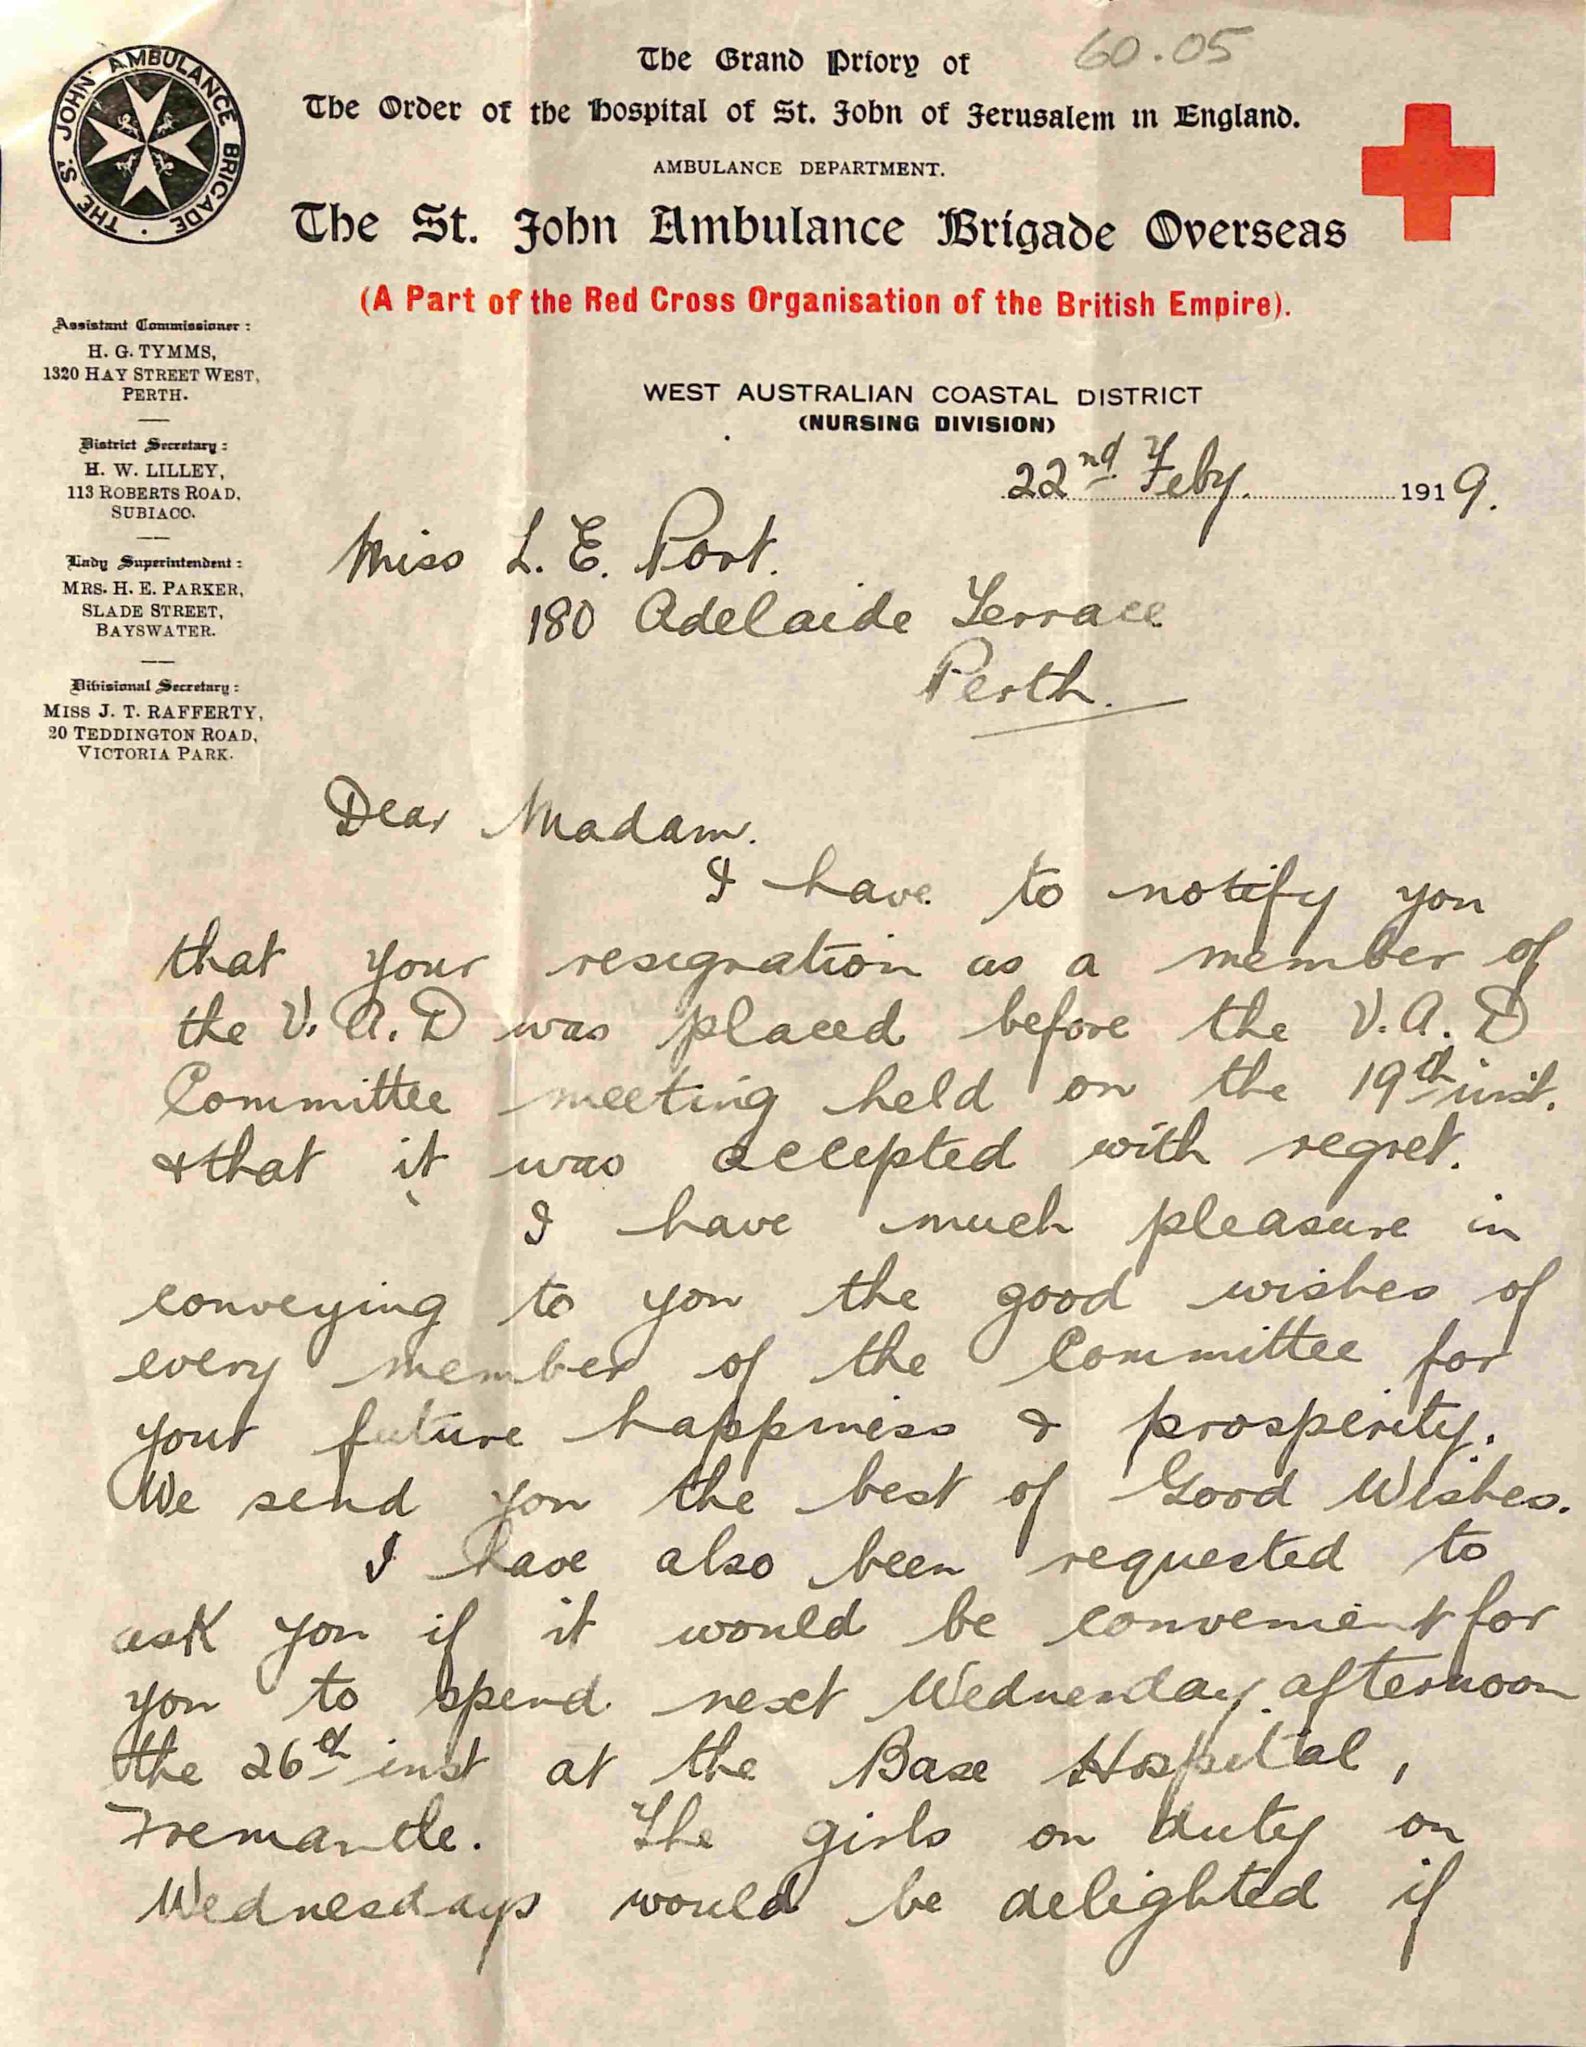 60.05
THE S. JOHN AMBULANCE BRIGADE
The Grand Priory of
The Order of the Hospital of St. John of Jerusalem in England.
AMBULANCE DEPARTMENT.
The St. John Ambulance Brigade Overseas
(A Part of the Red Cross Organisation of the British Empire).
Assistant Commissioner:
H. G. TYMMS,
1320 HAY STREET WEST,
PERTH.
District Secretary:
H. W. LILLEY,
113 ROBERTS ROAD,
SUBIACO.
Lady Superintendent:
MRS. H. E. PARKER,
SLADE STREET,
BAYSWATER.
Divisional Secretary:
MISS J. T. RAFFERTY,
20 TEDDINGTON ROAD,
VICTORIA PARK.
WEST AUSTRALIAN COASTAL DISTRICT
(NURSING DIVISION)
22nd Feby. 1919.
Miss L. E. Port.
180 Adelaide Terrace
Perth.
Dear Madam.
I have to notify you
that your resignation as a member of
the V.A.D was placed before the V.A.D
Committee meeting held on the 19th inst.
& that it was accepted with regret.
I have much pleasure in
conveying to you the good wishes of
every member of the Committee for
your future happiness & prosperity.
We send you the best of Good Wishes.
I have also been requested to
ask you if it would be convenient for
you to spend next Wednesday afternoon
the 26th inst at the Base Hospital,
Fremantle. The girls on duty on
Wednesdays would be delighted if